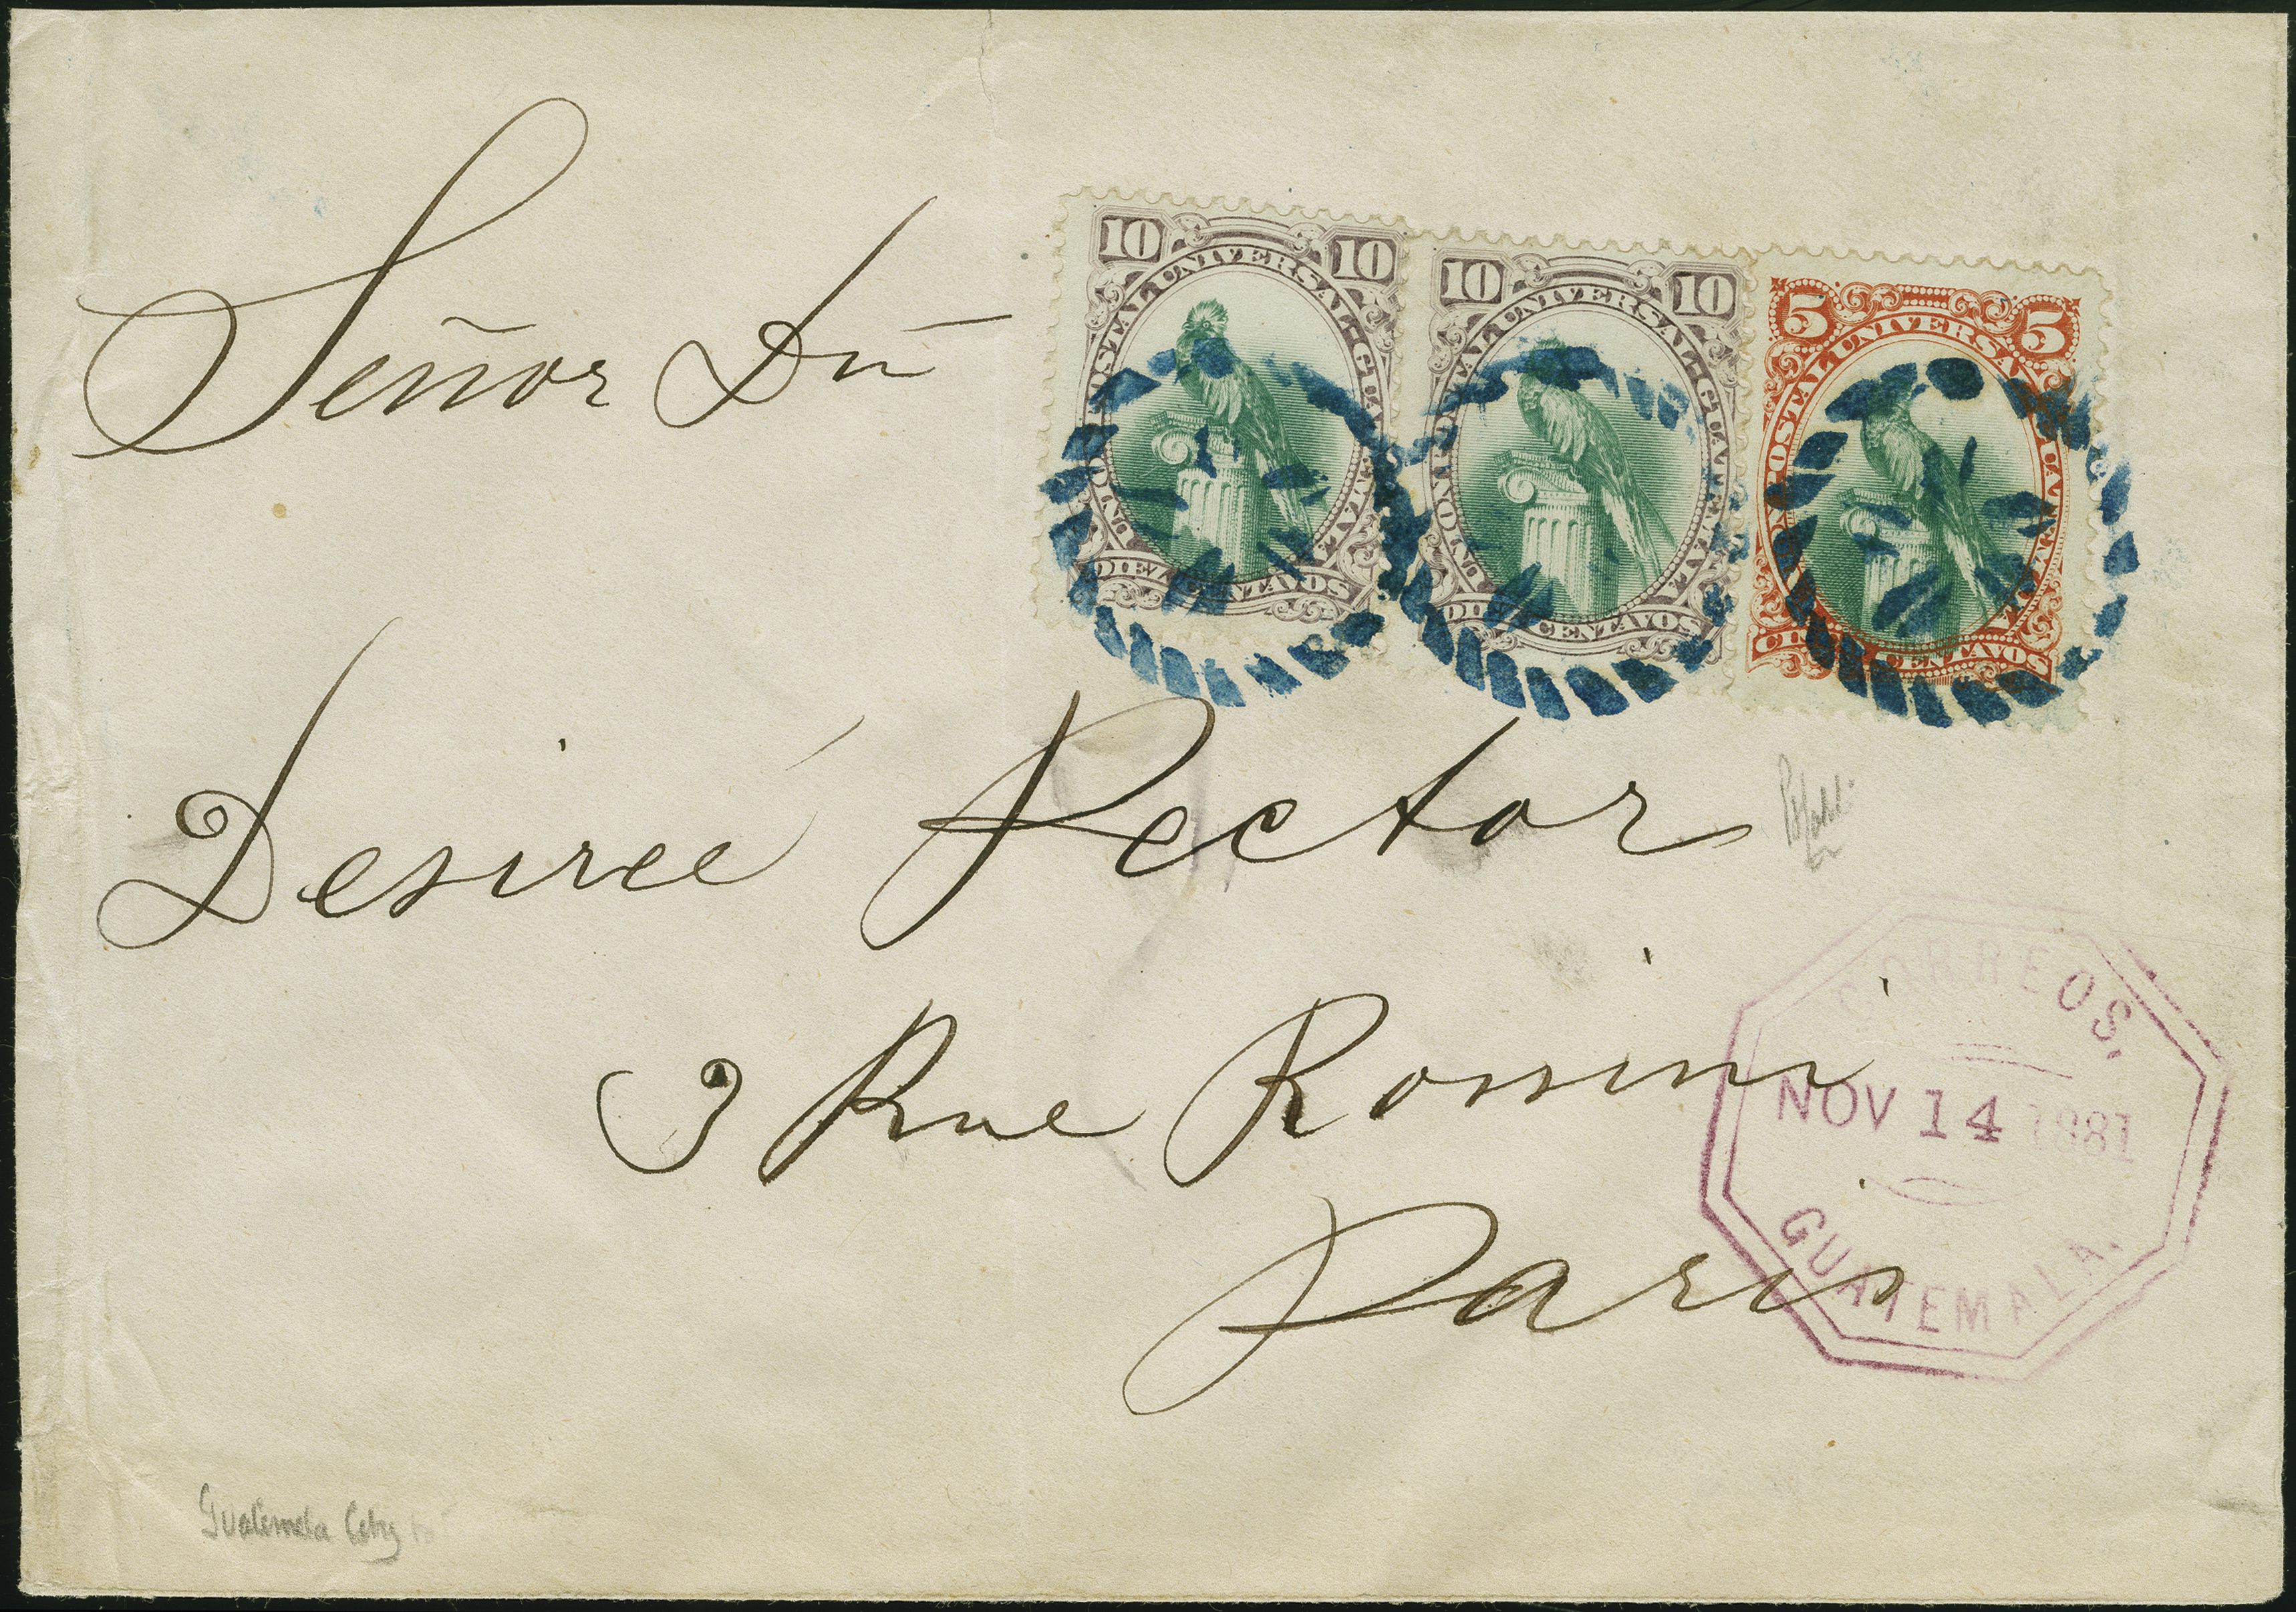 Señor Dn
10 10
UNION POSTAL UNIVERSAL GUATEMALA
DIEZ CENTAVOS
10 10
UNION POSTAL UNIVERSAL GUATEMALA
DIEZ CENTAVOS
5 5
UNION POSTAL UNIVERSAL GUATEMALA
CINCO CENTAVOS
Desireé Pector
9 Rue Rossini
Paris
CORREOS.
NOV 14 1881
GUATEMALA.
Guatemala City